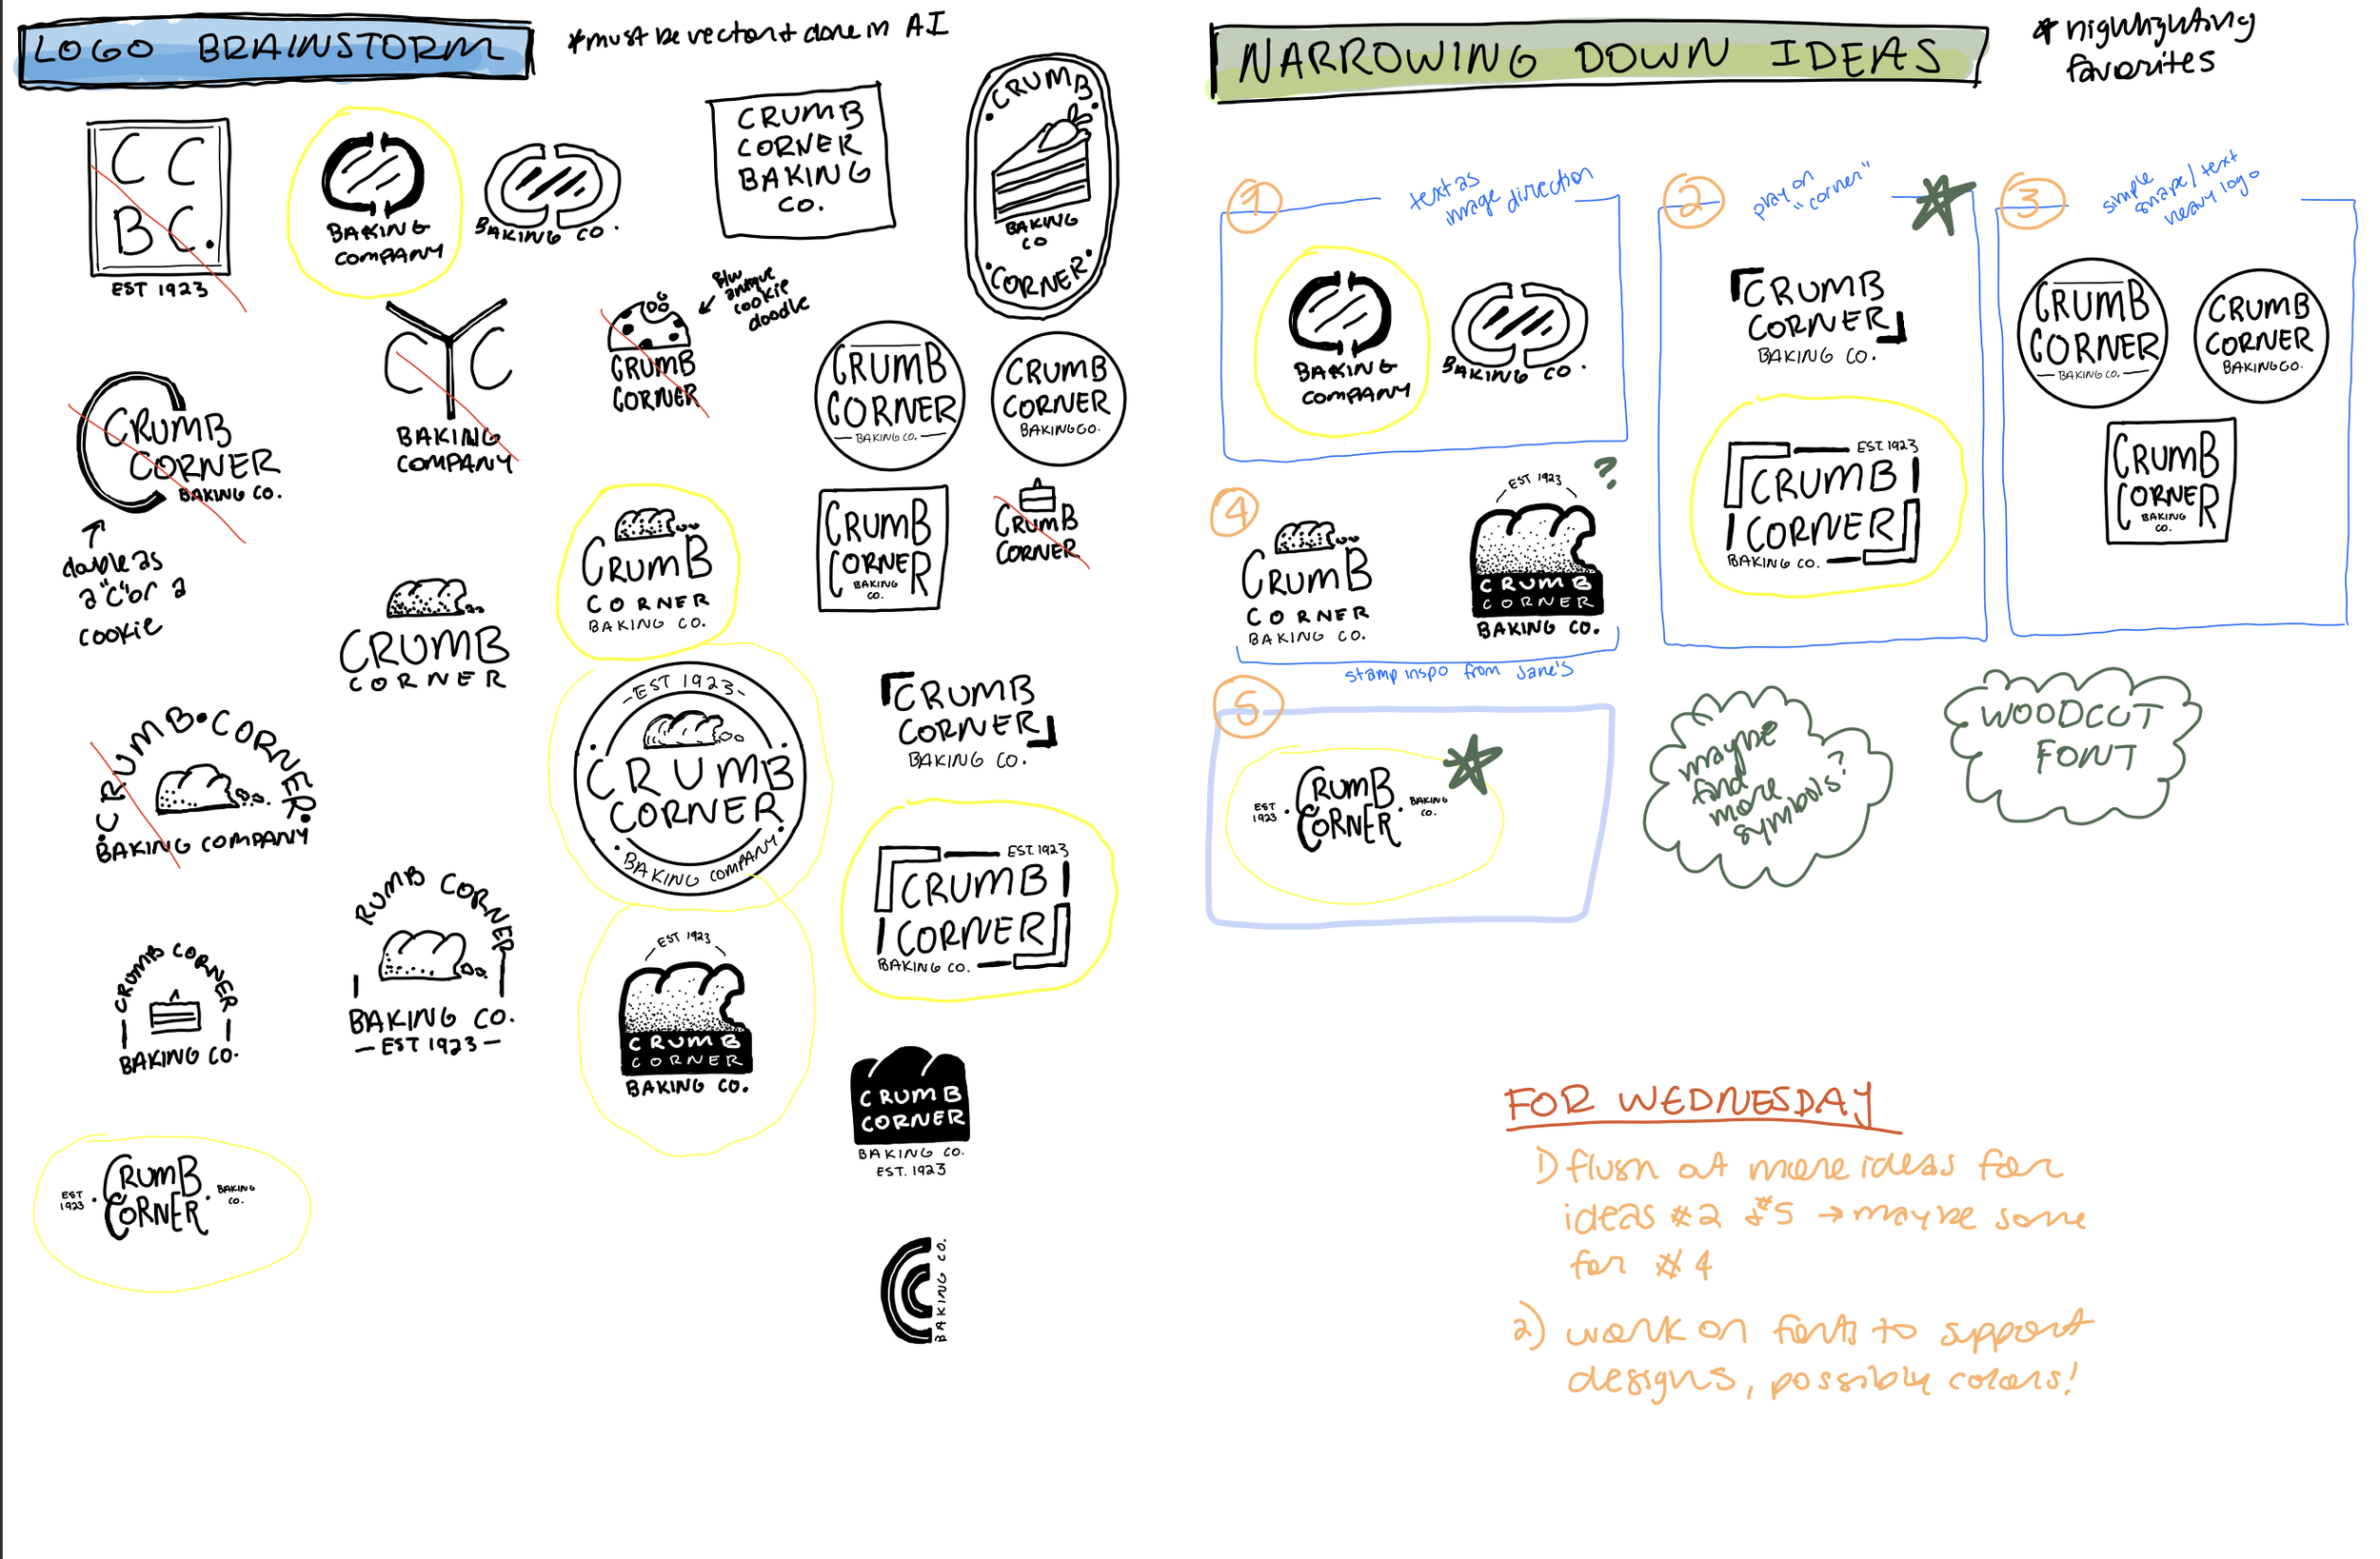 LOGO BRAINSTORM
*must be vector + done in AI
C C
B C.
EST 1923
BAKING
COMPANY
BAKING CO.
CRUMB
CORNER
BAKING
CO.
CRUMB
BAKING
CO
CORNER
C C
BAKING
COMPANY
CRUMB
CORNER
B/W
antique
cookie
doodle
CRUMB
CORNER
BAKING CO.
CRUMB
CORNER
BAKING CO.
CRUMB
CORNER
BAKING CO.
double as
a "C" or a
cookie
CRUMB
CORNER
BAKING CO.
CRUMB
CORNER
BAKING
CO.
CRUMB
CORNER
CRUMB
CORNER
EST 1923
CRUMB
CORNER
BAKING COMPANY
CRUMB
CORNER
BAKING CO.
CRUMB CORNER
BAKING COMPANY
EST. 1923
CRUMB
CORNER
BAKING CO.
CRUMB CORNER
BAKING CO.
RUMB CORNER
BAKING CO.
EST 1923
EST 1923
CRUMB
CORNER
BAKING CO.
CRUMB
CORNER
BAKING CO.
EST. 1923
EST
1923
CRUMB
CORNER
BAKING
CO.
BAKING CO.
NARROWING DOWN IDEAS
* highlighting
favorites
1
text as
image direction
BAKING
COMPANY
BAKING CO.
2
play on
"corner"
CRUMB
CORNER
BAKING CO.
EST. 1923
CRUMB
CORNER
BAKING CO.
3
simple
shape/text
heavy logo
CRUMB
CORNER
BAKING CO.
CRUMB
CORNER
BAKING CO.
CRUMB
CORNER
BAKING
CO.
4
CRUMB
CORNER
BAKING CO.
?
EST 1923
CRUMB
CORNER
BAKING CO.
stamp inspo from Jane's
5
EST
1923
CRUMB
CORNER
BAKING
CO.
maybe
find
more
symbols?
WOODCUT
FONT
FOR WEDNESDAY
1) flush out more ideas for
ideas #2 & #5 → maybe some
for #4
2) work on fonts to support
designs, possibly colors!